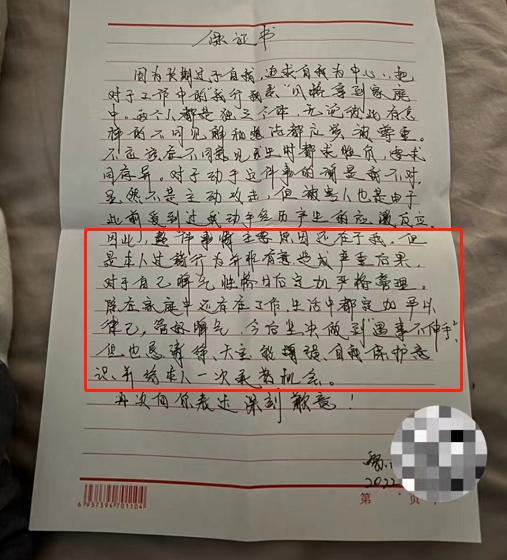 保证书
因为长期过于自我，追求自我为中心，把
对于工作中的"我行我素"风格带到家庭
中，两个人都是独立个体，无论彼此存在
怎样的不同见解和想法都应当被尊重。
不应该在不同意见产生时都求胜负，要求
同存异。对于动手这件事的确是我不对，
虽然不是主动攻击，但被害人也是由于
此前受到过我动手经历产生的应激反应。
因此，这件事情主要原因还在于我，但
是本人过激行为并非有意造成严重后果，
对于自己脾气性格日后定加严格管理。
除在家庭中还有在工作、生活中都定加平以
律己，管好脾气，今后坚决做到"遇事不伸手"，
但也恳请徐大宝能增强自我保护意
识，并给本人一次素养机会。
再次向你表达深刻歉意！
2022
第 页
6937394701104